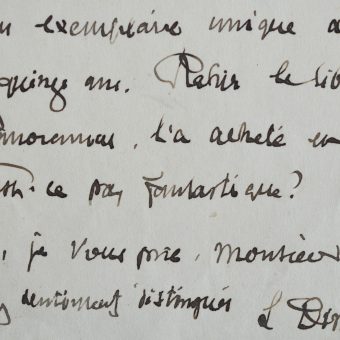 exemplaire unique
quinze ans. Rahir le lib
l'a acheté en
-ce pas fantastique?
, je vous prie, Monsieur
sentiments distingués